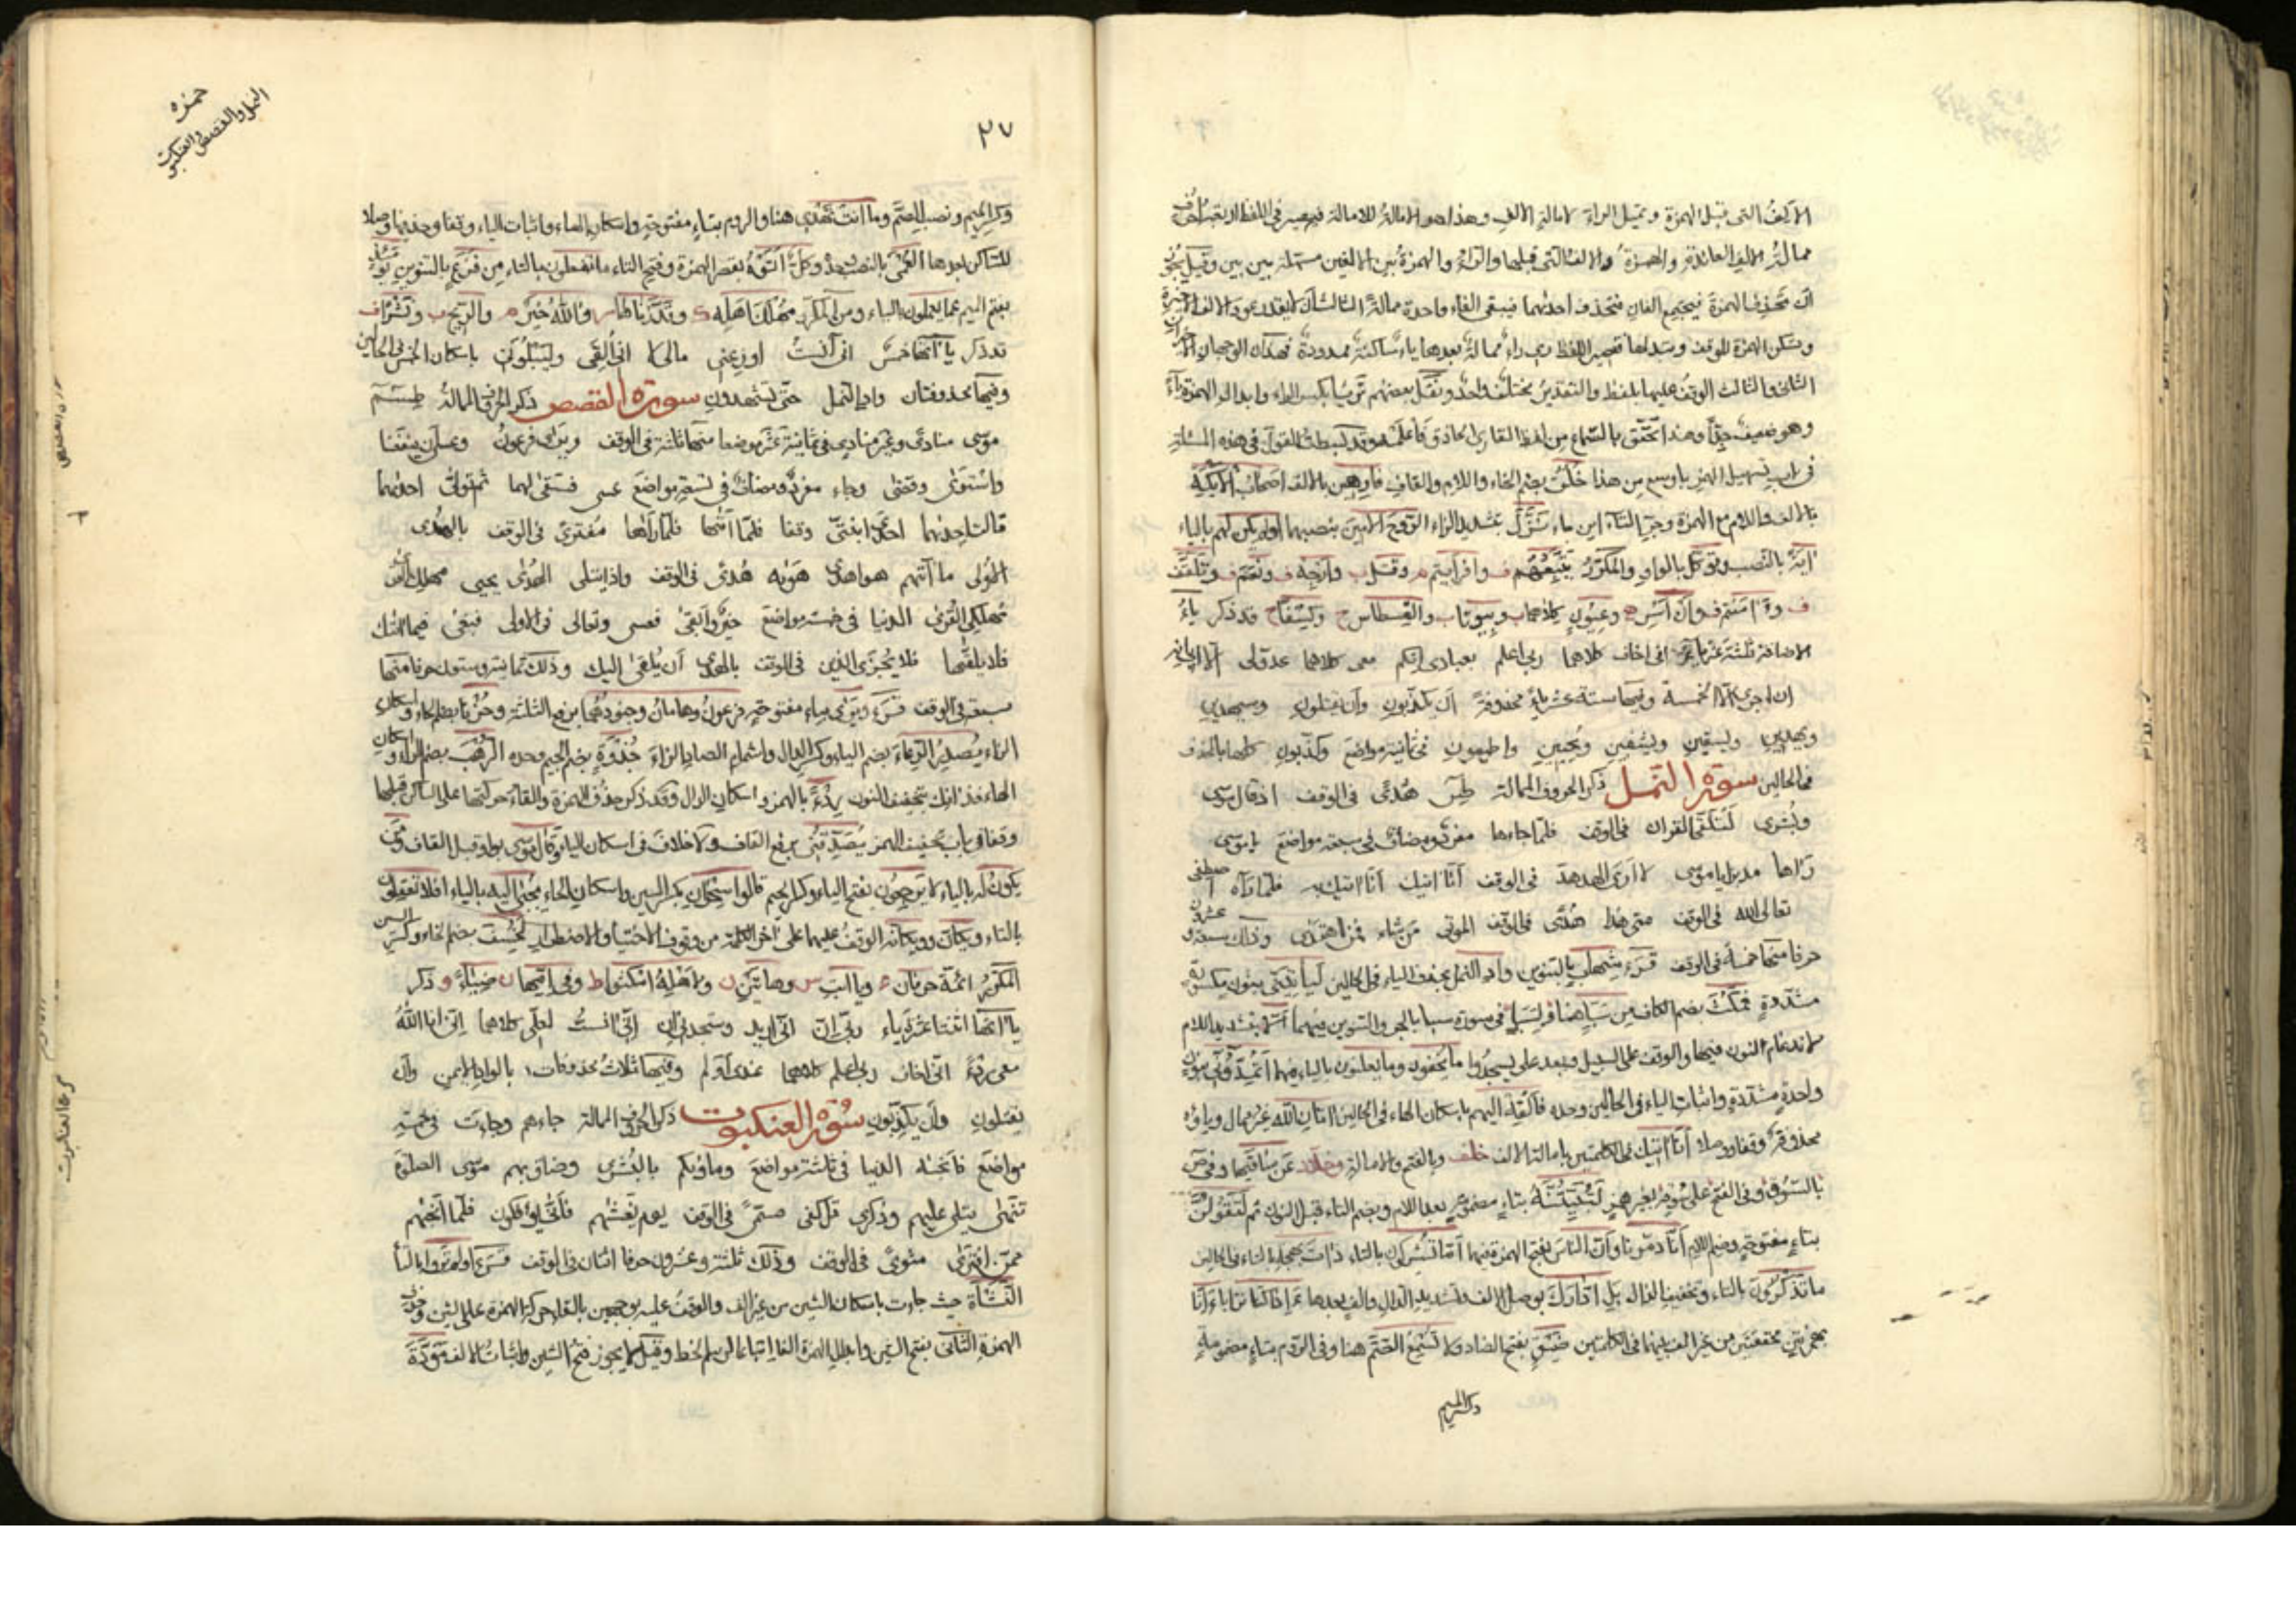 الالف التى قبل الهمزة وتميل الراء لامالة الالف وهذا هو الامالة للامالة فيصير فى اللفظ
ممالة الالف العائدة والهمزة والالف التى قبلها والراء والهمزة بين الالفين مسهلة بين بين وقيل يجوز
ان تحذف الهمزة فيجتمع الفان فتحذف احدىهما فيبقى الفاء واحدة ممالة الثالث ان
وتسكن الهمزة للوقف وتبدلها فيصير اللفظ براء ممالة بعدها ياء ساكنة ممدودة فهذان الوجهان
الثانى والثالث الوقف عليها بلفظ والتقدير مختلف واحد ونقل بعضهم بكسر الراء وابدال الهمزة ياء
وهو ضعيف جدا وهذا تحقق بالسماع من لفظ القارئ الحاذق فاعلمه وقد بسطت القول فى هذه المسئلة
فى باب تسهيل الهمز باوسع من هذا خلق بضم الخاء واللام والقاف فارهين بالالف اصحاب الايكة
بالالف واللام مع الهمزة وجر التاء اين ماء نزّل بتشديد الزاء الروح الامين بنصبهما اولم يكن لهم بالياء
آية بالنصب وتوكل بالواو والمكرر يتبعهم ف وافرايتم م وقيل ب وارجه ف ونعم ف وتلقف
ف وءامنتم ف وان اسر ح وعيون كلاهما ب وبيوتا ب والقسطاس ح وكسفا ح قد ذكر ياء
الاضافة ثلثة عشر ياء انى اخاف كلاهما ربى اعلم بعبادى انكم معى كلاهما عدو لى الا لابى انه
ان اجرى الا الخمسة وفيها ستة عشر ياء محذوفة ان يكذبون وان يقتلون وسيهدين
ويهدين ويسقين ويشفين ويحيين واطيعون فى ثمانية مواضع وكذبون كلها بالحذف
فى الحالين سورة النمل ذكر الحروف الممالة طس هدى فى الوقف اذ قال موسى
وبشرى لتلقى القران فى الوقف فلما جاءها مفرد ومضاف فى سبعة مواضع يا موسى
رءاها مدبرا يا موسى لا ارى الهدهد فى الوقف انا اتيك انا اتيك فلما رآه اصطفى
تعالى الله فى الوقف متى هذا هدى فى الوقف الموتى من شاء فمن اهتدى وذلك سبعة وعشرون
حرفا منها خمسة فى الوقف قرء بشهاب بالتنوين واد النمل بحذف الياء فى الحالين ليأتينى بنون مكسورة
مشددة فمكث بضم الكاف من سبا هنا ولسبا فى سورة سبا بالجر والتنوين فيهما الا بتشديد اللام
لاندغام النون فيها والوقف على السبيل ويبعد على يسجدوا ما يخفون وما يعلنون بالياء فيهما اتمدونى بنون
واحدة مشددة واثبات الياء فى الحالين وحده فالقه اليهم باسكان الهاء فى الحالين اتان الله غير ممال وياؤه
محذوفة وقفا ووصلا انا اتيك فى الكلمتين بامالة الالف خلف وبالفتح والامالة وخلاد عن ساقيها وفى ص
بالسوق وفى الفتح على سوقه بغير همز لتبيتنه بتاء مضمومة بعد اللام وبضم التاء قبل النون ثم لتقولن
بتاء مفتوحة وضم اللام انا دمرناهم وان الناس بفتح الهمزة فيهما اما تشركون بالتاء ذات بهجة بالتاء فى الحالين
ما تذكرون بالتاء وتخفيف الذال بل ادارك بوصل الالف وتشديد الدال والف بعدها ءاذا كنا ترابا ءانا
بهمزتين محققتين من غير الف بينهما فى الكلمتين ضيق بفتح الضاد ولا تسمع الصم هنا وفى الروم بتاء مضمومة
وكسر الميم
حمزه
النمل والقصص والعنكبوت
٢٧
وكسر الميم ونصب الصم وما انت تهدى هنا والروم بتاء مفتوحة واسكان الهاء واثبات الياء وقفا وحذفها وصلا
للساكن بعدها العمى بالنصب وحده وكل اتوه بقصر الهمزة وفتح التاء ما تفعلون بالتاء من فزع بالتنوين يومئذ
بفتح الميم عما يعملون بالياء ومن المكرر مهلك اهله وقدرناها والله خير والريح ونشرا ف
قد ذكر ياءاتها خمس انى آنست اوزعنى مالى لا انى القى وليبلونى باسكان الخمس فى الحالين
وفيها محذوفتان واد النمل حتى تشهدون سورة القصص ذكر الحروف الممالة طسم
موسى منادى وغير منادى فى ثمانية عشر موضعا منها ثلثة فى الوقف ويرى فرعون وعسى ان ينفعنا
واستوى وقضى وجاء مفرد ومضاف فى تسعة مواضع عسى فسقى لهما ثم تولى احدىهما
قالت احدىهما احدى ابنتى وقفا فلما اتىها فلما راها مفترى فى الوقف بالهدى
الاولى ما آتيهم هو اهدى هوىه هدى فى الوقف واذا يتلى الهدى يجبى مهلك
مهلكى القرى الدنيا فى خمسة مواضع خير وابقى فعسى وتعالى فى الاولى فبغى فيما اتىك
ولا يلقىها فلا يجزى الذين فى الوقف بالهدى ان يلقى اليك وذلك ثمانية وستون حرفا منها
سبعة فى الوقف قرء ويرى بياء مفتوحة فرعون وهامان وجنودهما برفع الثلثة وحزنا بضم الحاء واسكان
الزاء يصدر الرعاء بضم الياء وكسر الدال واشمام الصاد الزاء جذوة بضم الجيم وحده الرهب بضم الراء واسكان
الهاء فذانك بتخفيف النون ردءا بالهمز واسكان الدال وقد ذكر حذف الهمزة والقاء حركتها على الساكن قبلها
وقفا فى باب تخفيف الهمز يصدقنى برفع القاف ولا خلاف فى اسكان الياء وقال موسى بواو قبل القاف ومن
يكون له بالياء لا يرجعون بفتح الياء وكسر الجيم قالوا سحران بكسر السين واسكان الحاء يجبى اليه بالياء افلا تعقلون
بالتاء ويكان وويكانه الوقف عليهما على اخر الكلمة من وقوف الاختيار والاضطرار لخسف بضم الخاء وكسر السين
المكرر ائمة حرفان ويا ابت س وهاتين ن ولاهله امكثوا ط وفى امها ن ضياء و ذكر
ياءاتها اثنتا عشرة ياء ربى ان انى اريد وستجدنى ان انى آنست لعلى كلاهما انى انا الله
معى ردءا انى اخاف ربى اعلم كلاهما عندى اولم وفيها ثلاث محذوفات بالواد الايمن وان
يقتلون وان يكذبون سورة العنكبوت ذكر الحروف الممالة جاءهم وجاءت فى خمسة
مواضع فانجىه الدنيا فى ثلثة مواضع وماوىكم بالبشرى وضاق بهم موسى الصلوة
تنهى يتلى عليهم وذكرى قل كفى مسمى فى الوقف يوم يغشىهم فانى يؤفكون فلما انجىهم
ممن افترى مثوى فى الوقف وذلك ثلثة وعشرون حرفا اثنان فى الوقف قرء اولم تروا بالتاء
النشاة حيث جاءت باسكان الشين من غير الف والوقف عليه بوجهين بالقاء حركة الهمزة على الشين وحذف
الهمزة الثانى بفتح الشين وابدال الهمزة الفا اتباعا لرسم الخط وقيل لا يجوز فتح الشين واثبات الالف مودة